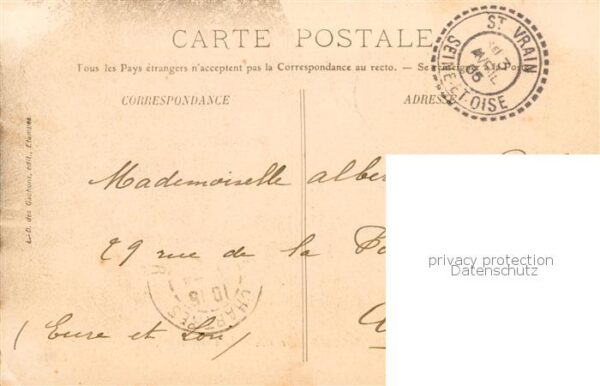 CARTE POSTALE
Tous les Pays étrangers n'acceptent pas la Correspondance au recto. — Se
CORRESPONDANCE
ADRESSE
ST VRAIN
SEINE-ET-OISE
AVRIL
05
L.-D. des Gachons, édit., Etampes
Mademoiselle alber
29 rue de la
CHARTRES
(Eure et Loir)
privacy protection
Datenschutz